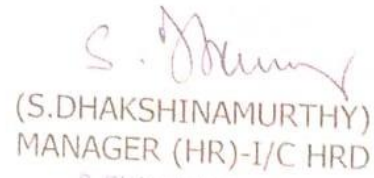 (S.DHAKSHINAMURTHY)
MANAGER (HR)-I/C HRD